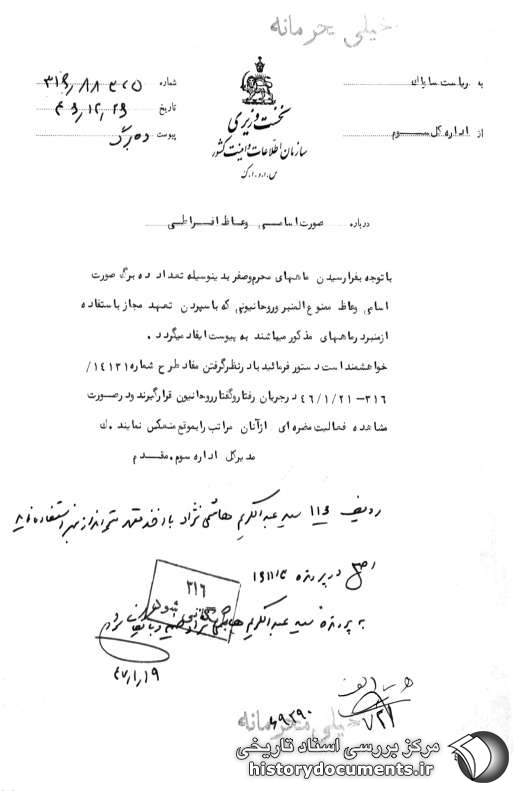 خیلی محرمانه
به ریاست ساواک
از اداره کل سوم
نخست وزیری
سازمان اطلاعات و امنیت کشور
س.ا.و.ا.ک
شماره ۳۱۶/۸۸۳۰۵
تاریخ ۴۶/۱۲/۲۶
پیوست ده برگ
درباره صورت اسامی وعاظ افراطی
با توجه بفرا رسیدن ماههای محرم وصفر بدینوسیله تعداد ده برگ صورت
اسامی وعاظ ممنوع المنبر وروحانیونی که با سپردن تعهد مجاز باستفاده
ازمنبر درماههای مذکور میباشند به پیوست ایفاد میگردد .
خواهشمند است دستور فرمائید با درنظرگرفتن مفاد طرح شماره ۱۴۱۳۱/
۳۱۶–۴۶/۱/۲۱ درجریان رفتار وگفتار روحانیون قرارگیرند ودرصورت
مشاهده فعالیت مضره ای ازآنان مراتب را بموقع منعکس نمایند . ك
مدیرکل اداره سوم . مقدم
ردیف سید عبدالکریم هاشمی نژاد با اخذ تعهد می‌تواند از منبر استفاده نماید
اصل در پرونده
۳۱۶
به پرونده سید عبدالکریم هاشمی نژاد
۴۷/۱/۱۹
خیلی محرمانه
مرکز بررسی اسناد تاریخی
historydocuments.ir